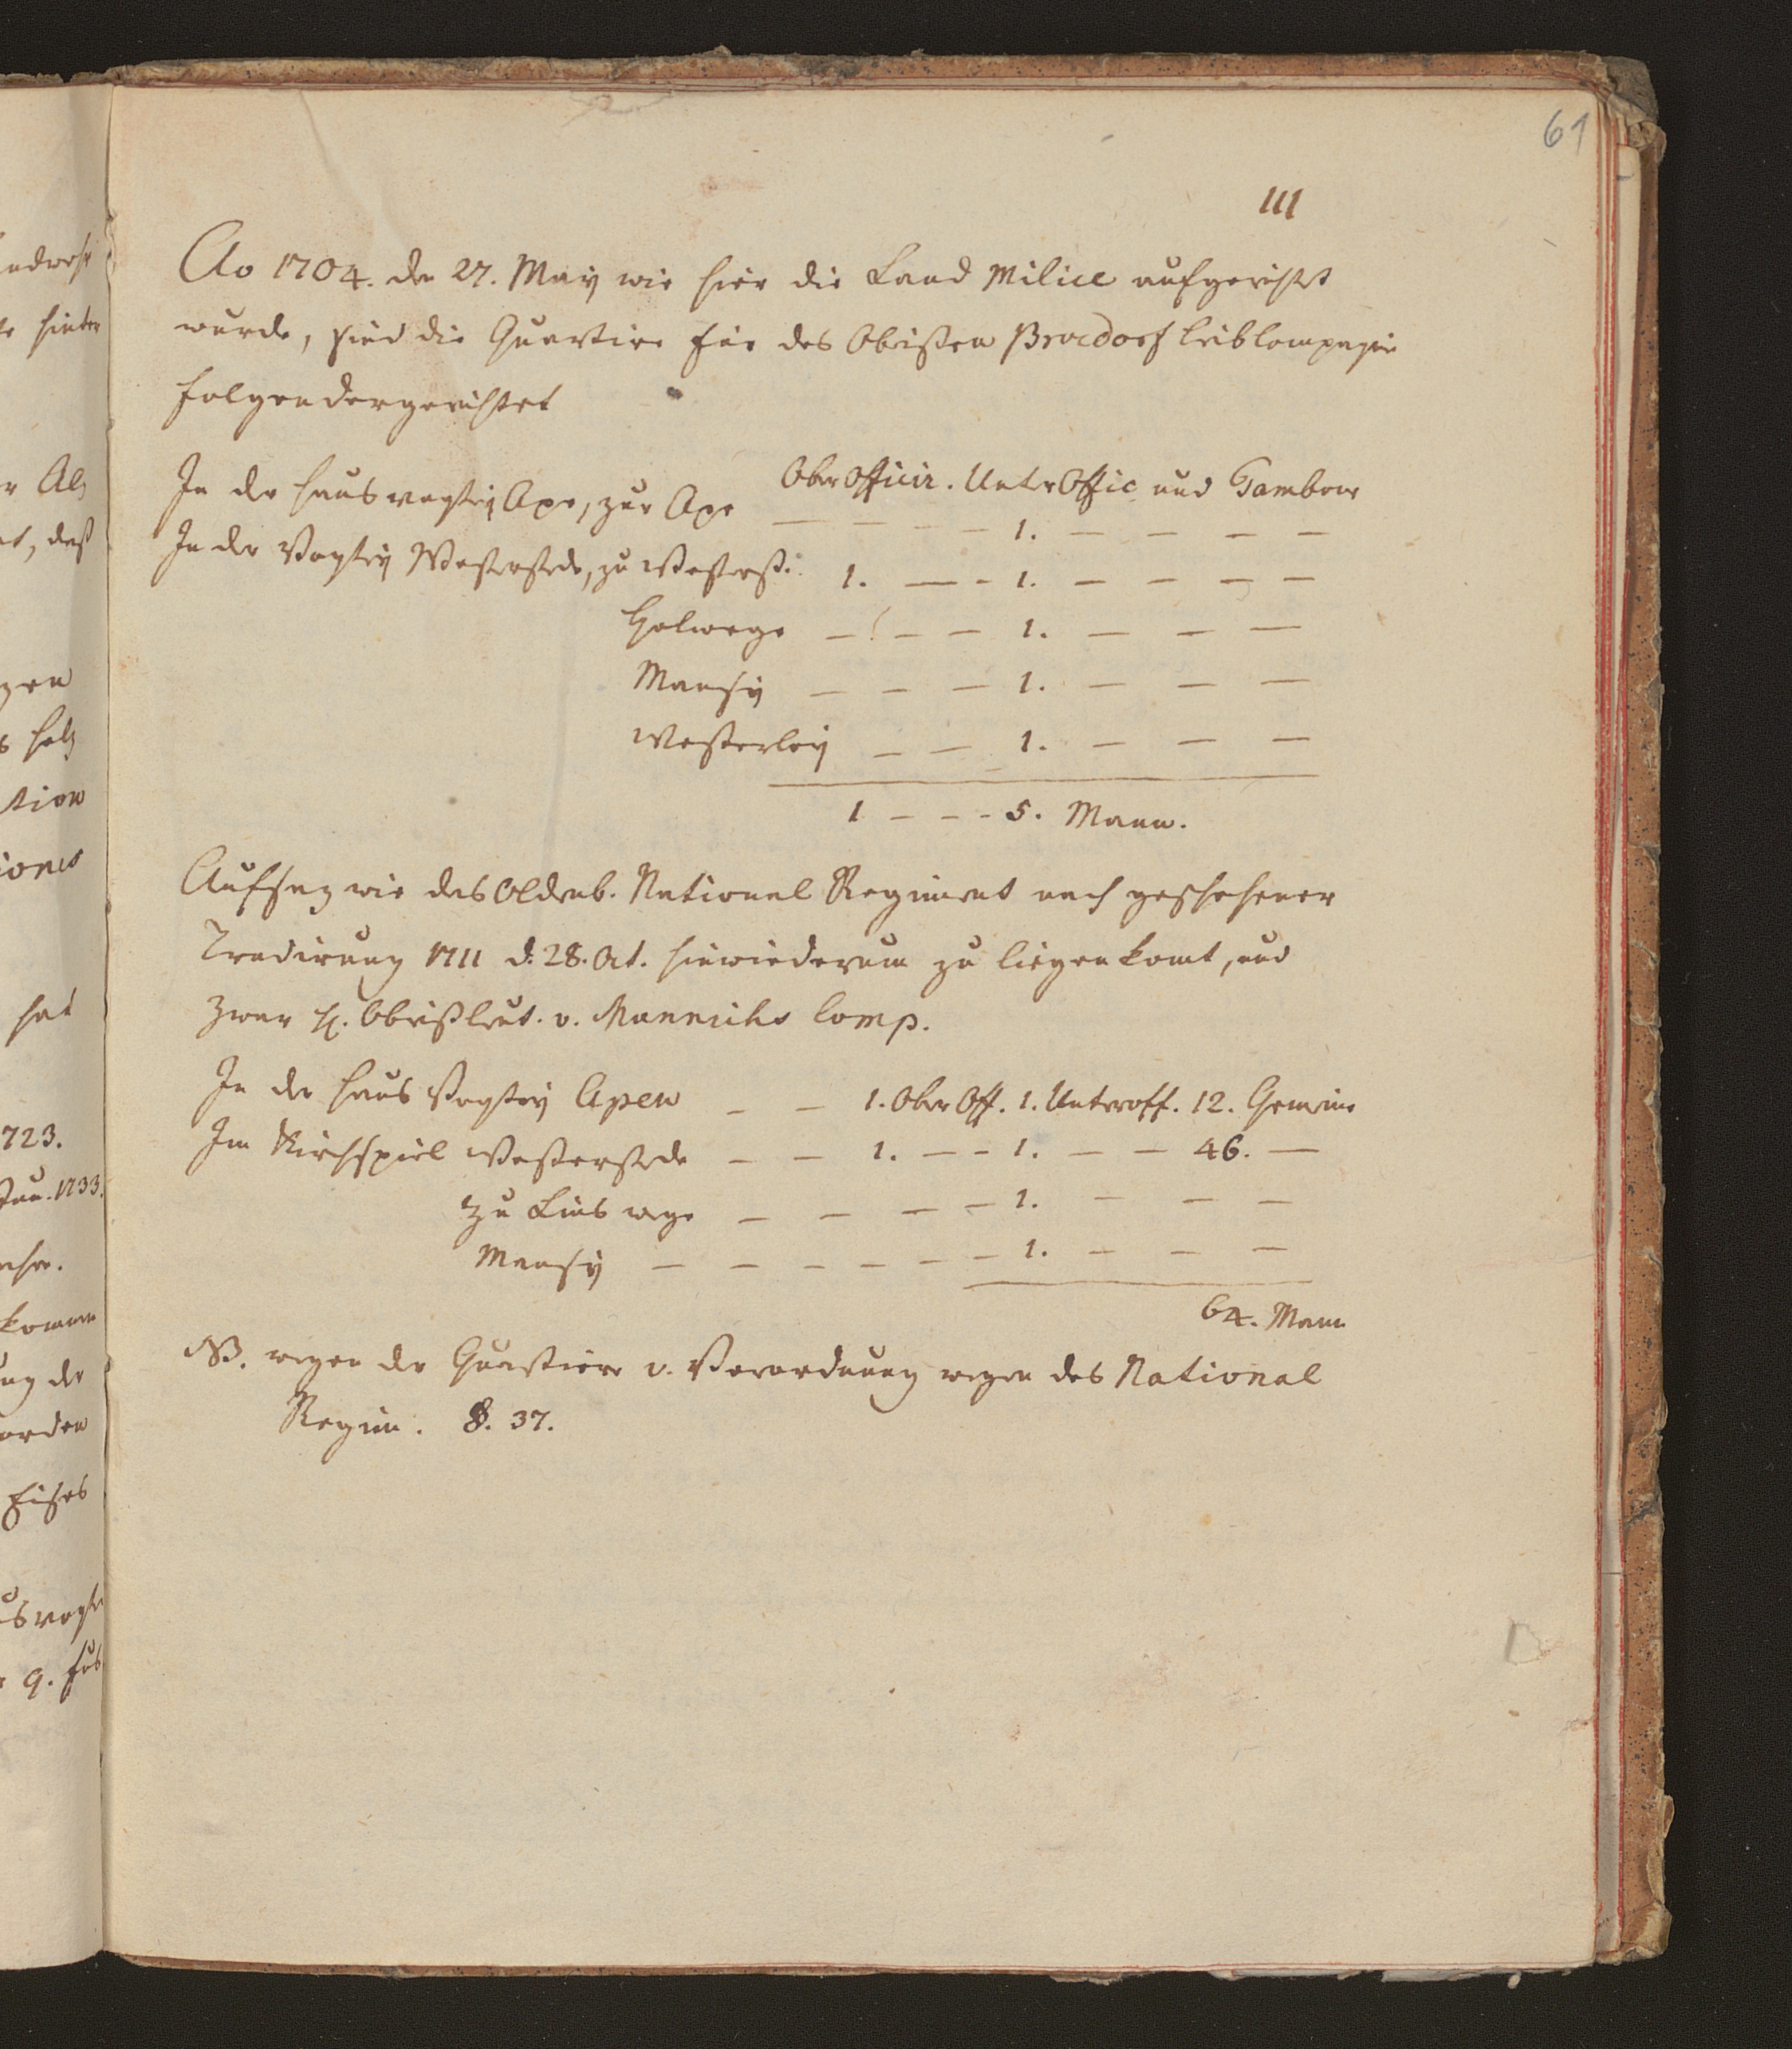 61
111
Ao 1704. den 27. May wie hier die Land Milice aufgerichtet
wurde, sind die Quartire für des Obristen Brocdorf leibCompagnie
folgender gerichtet
OberOfficir. UnterOffic und Tambour
In der Hausvogtey Ape, zur Ape — — — — 1. — — — —
In der Vogtey Westerstede, zu Westerst. 1. — - 1. — — — —
Holwege — — — 1. — — —
Mansiy — — — 1. — — —
Westerloy — — 1. — — —
1 — — - 5. Mann.
Aufsaz wie das Oldenb. National Regiment nach geschehener
Tradirung 1711 d. 28. Oct. hinwiederum zu liegen komt, und
zwar H. Obristleut. v. Mannichs Comp.
In der Haus Vogtey Apen — — 1. Ober Off. 1. Unteroff. 12. Gemeine
Im Kirchspiel Westerstede — — 1. — - 1. — — 46. —
zu Linswege — — — - 1. — — —
Mansiy — — — — — - 1. — — —
64. Mann
NB. wegen der Quartiere v. Verordnung wegen des National
Regim. §. 37.
ndwehr
hinter
Alß
t, daß
gen
s holz
tion
iones
hat
723.
Jan. 1733.
ehr.
kommen
ung der
orden
Eises
usvogte
9. fus